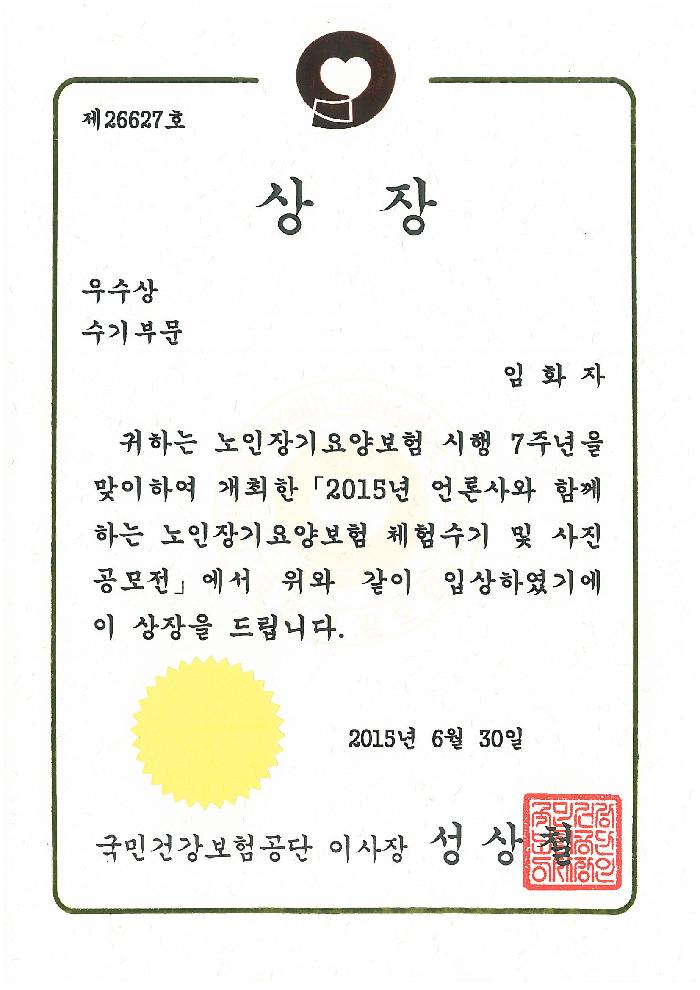 제26627호
상 장
우수상
수기부문
임 화 자
귀하는 노인장기요양보험 시행 7주년을
맞이하여 개최한 「2015년 언론사와 함께
하는 노인장기요양보험 체험수기 및 사진
공모전」에서 위와 같이 입상하였기에
이 상장을 드립니다.
2015년 6월 30일
국민건강보험공단 이사장 성 상 철